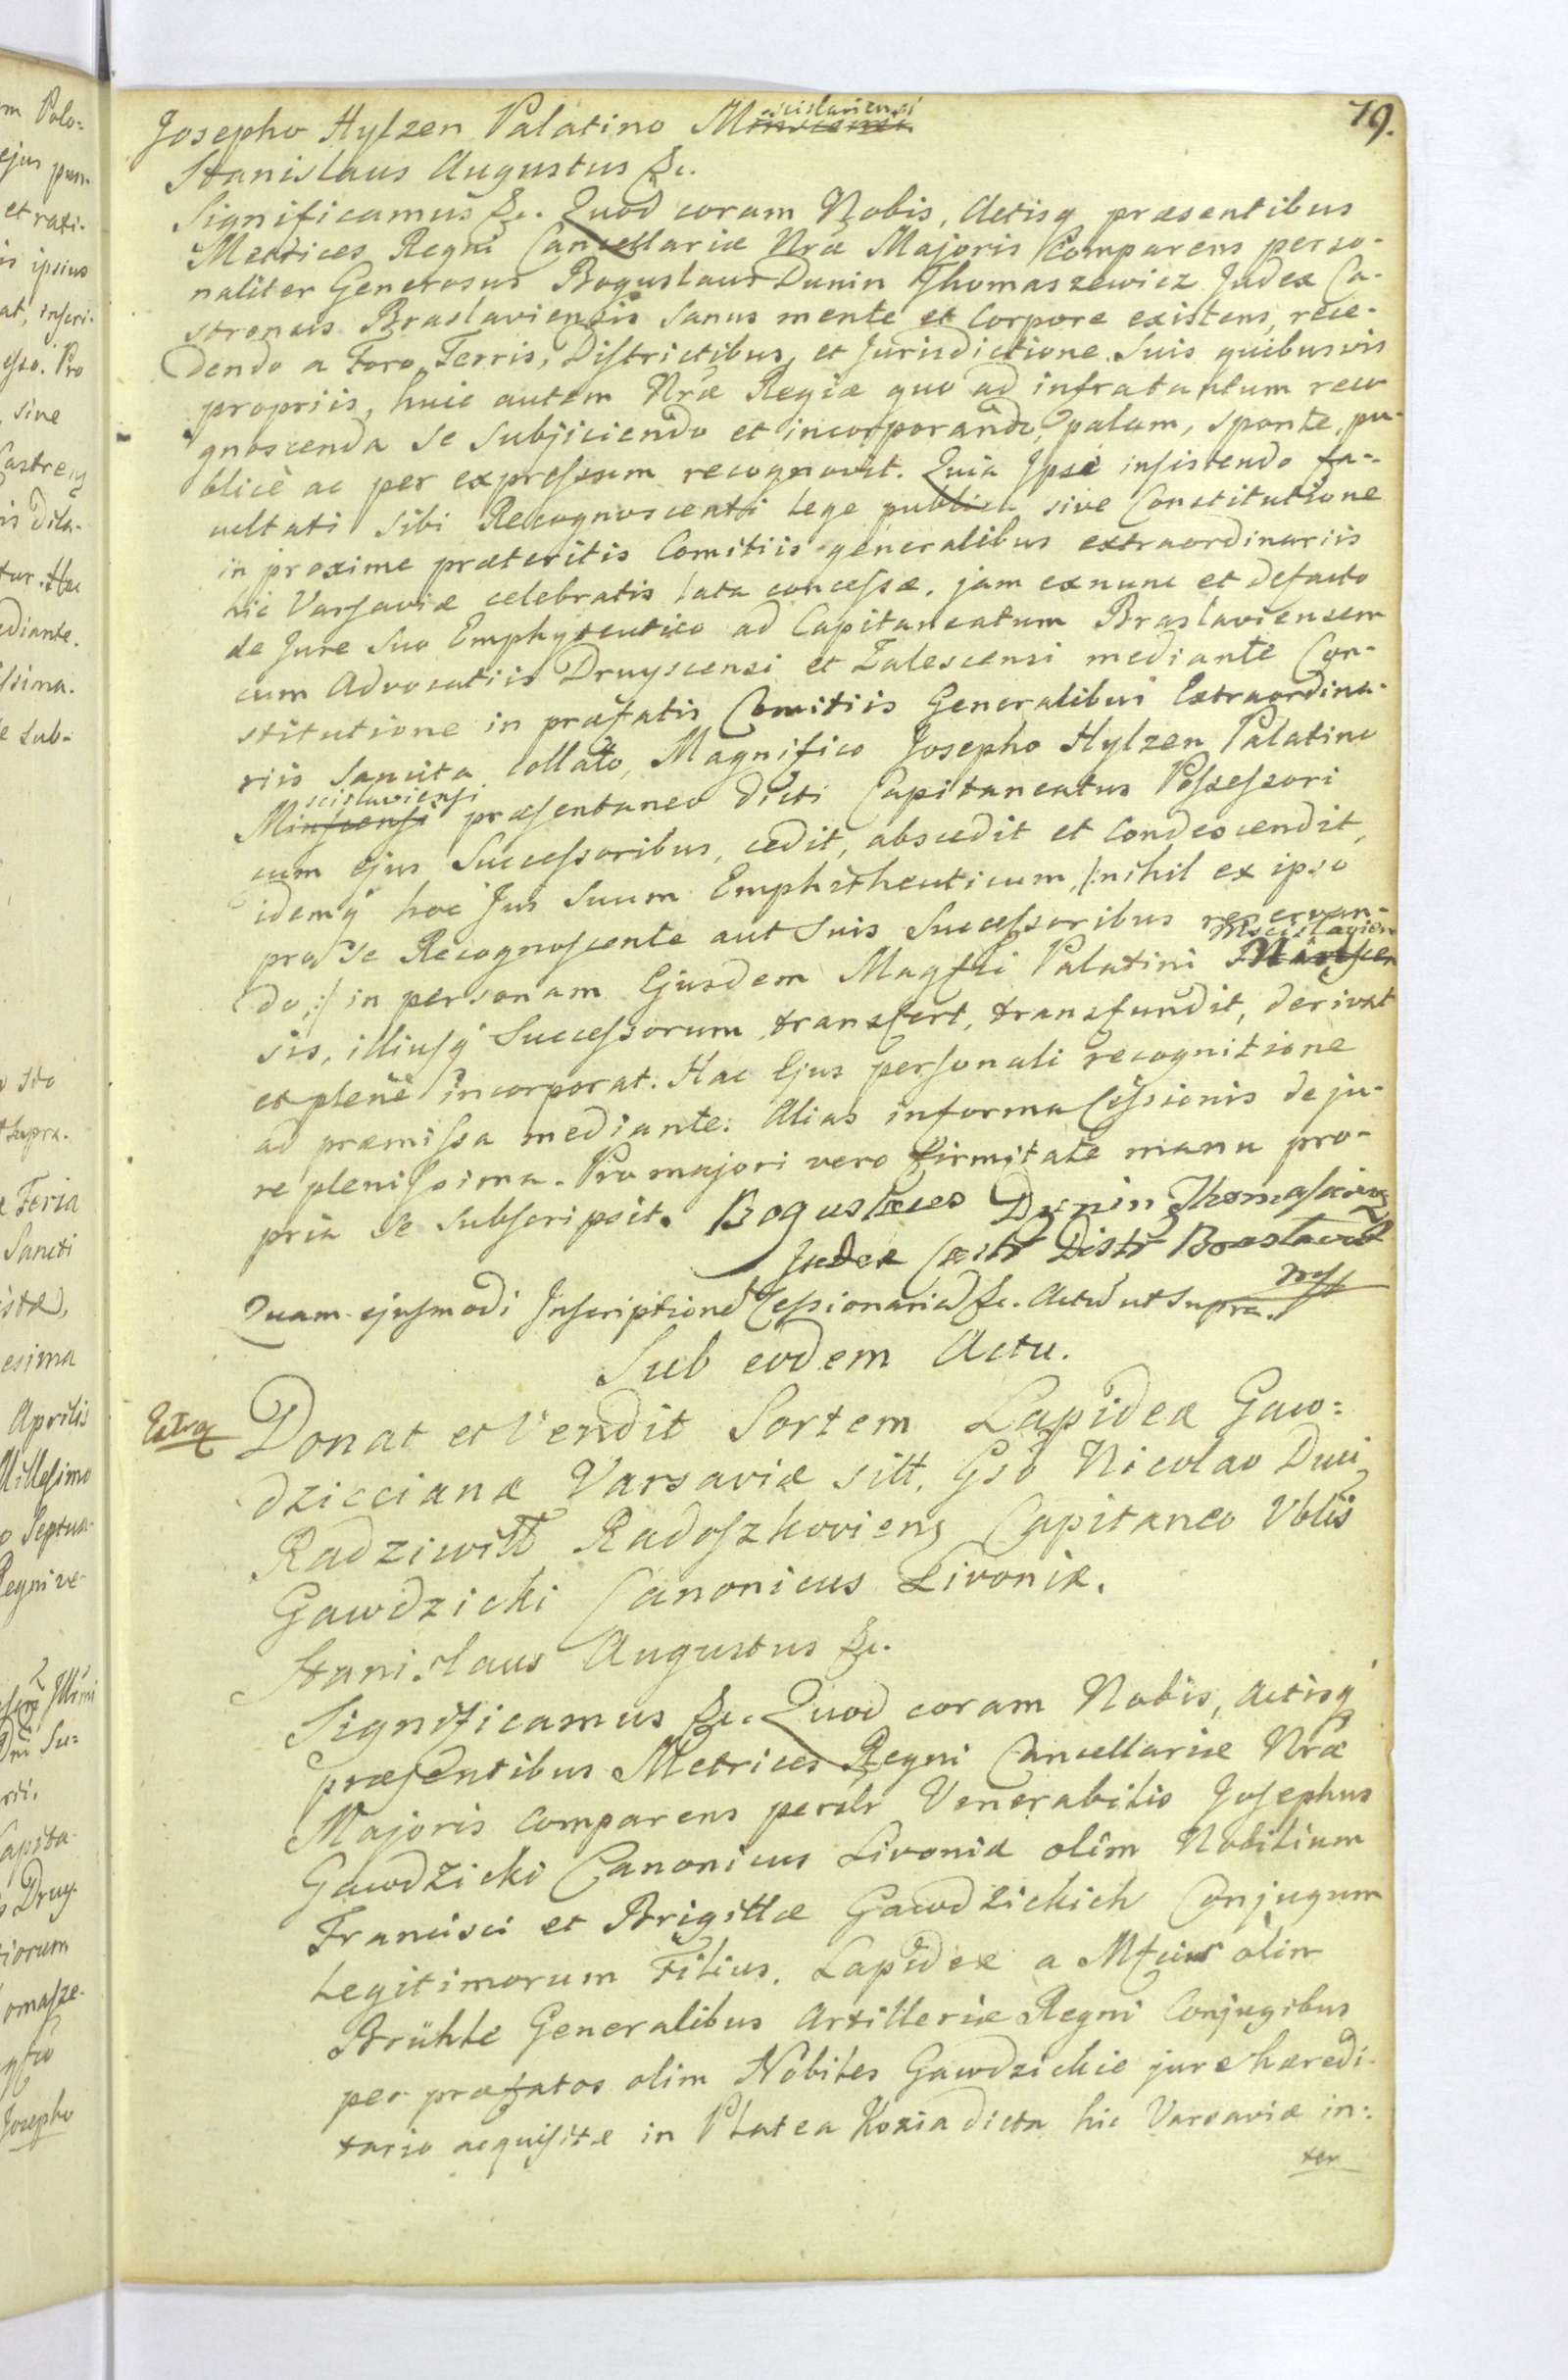 79.
Josepho Hylzen Palatino Mscislaviensi
Stanislaus Augustus &c.
Significamus &c. Quod coram Nobis, Actisq præsentibus
Metrices Regni Cancellariæ Nræ Majoris Comparens perso-
naliter Generosus Boguslaus Dunin Thomaszewicz Judex Ca-
strensis Braslaviensis Sanus mente et Corpore existens, rece-
dendo a Foro, Terris, Districtibus, et Jurisdictione Suis quibusvis
propriis, huic autem Nræ Regiæ quo ad infra tantum reco
gnoscenda se subjiciendo et incorporando, palam, sponte, pu-
blicè ac per expressum recognovit. Quia Ipse insistendo fa-
cultati sibi Recognoscenti lege publica sive Constitutione
in proxime præteritis Comitiis generalibus extraordinariis
hic Varsaviæ celebratis lata concessæ, jam exnunc et defacto
de Jure Suo Emphyteutico ad Capitaneatum Braslaviensem
cum Advocatiis Druyscensi et Zalescensi mediante Con-
stitutione in præfatis Comitiis Generalibus Extraordina-
riis Sancita collato, Magnifico Josepho Hylzen Palatino
Minscensi scislaviensi præsentaneo dicti Capitaneatus Possessori
cum ejus Successoribus, cedit, abscedit et Condescendit,
idemq hoc Jus Suum Emphitheuticum, /: nihil ex ipso
pro Se Recognoscente aut Suis Successoribus reservan-
do, :/ in personam Ejusdem Magfci Palatini Mscislavien
sis, illiusq Successorum transfert, transfundit, derivat
et plenè incorporat. Hac Ejus personali recognitione
ad præmissa mediante. Alias in forma Cessionis de ju-
re plenissima. Pro majori vero firmitate manu pro-
pria se subscripsit. Boguslaus Dunin Thomaszewicz
Judex Castr Distr Braslavi
mp
Quam ejusmodi Inscriptione Cessionaria &c. Actu ut Supra.
Sub eodem Actu.
Extra
Donat et Vendit Sortem Lapideæ Gaw:
dziccianæ Varsaviæ sitt. Gso Nicolao Duci
Radziwiłł Radoszkoviens Capitaneo Vblis
Gawdzicki Canonicus Livoniæ.
Stanislaus Augustus &c.
Significamus &c. Quod coram Nobis, Actisq
præsentibus Metrices Regni Cancellariæ Nræ
Majoris Comparens perslr Venerabilis Josephus
Gawdzicki Canonicus Livoniæ olim Nobilium
Francisci et Brigittæ Gawdzickich Conjugum
Legitimorum Filius. Lapideæ a Mfcis olim
Brühle Generalibus Artilleriæ Regni Conjugibus
per præfatos olim Nobiles Gawdzickie jure hæredi-
tario acquisitæ in Platea Kozia dicta hic Varsaviæ in:
ter